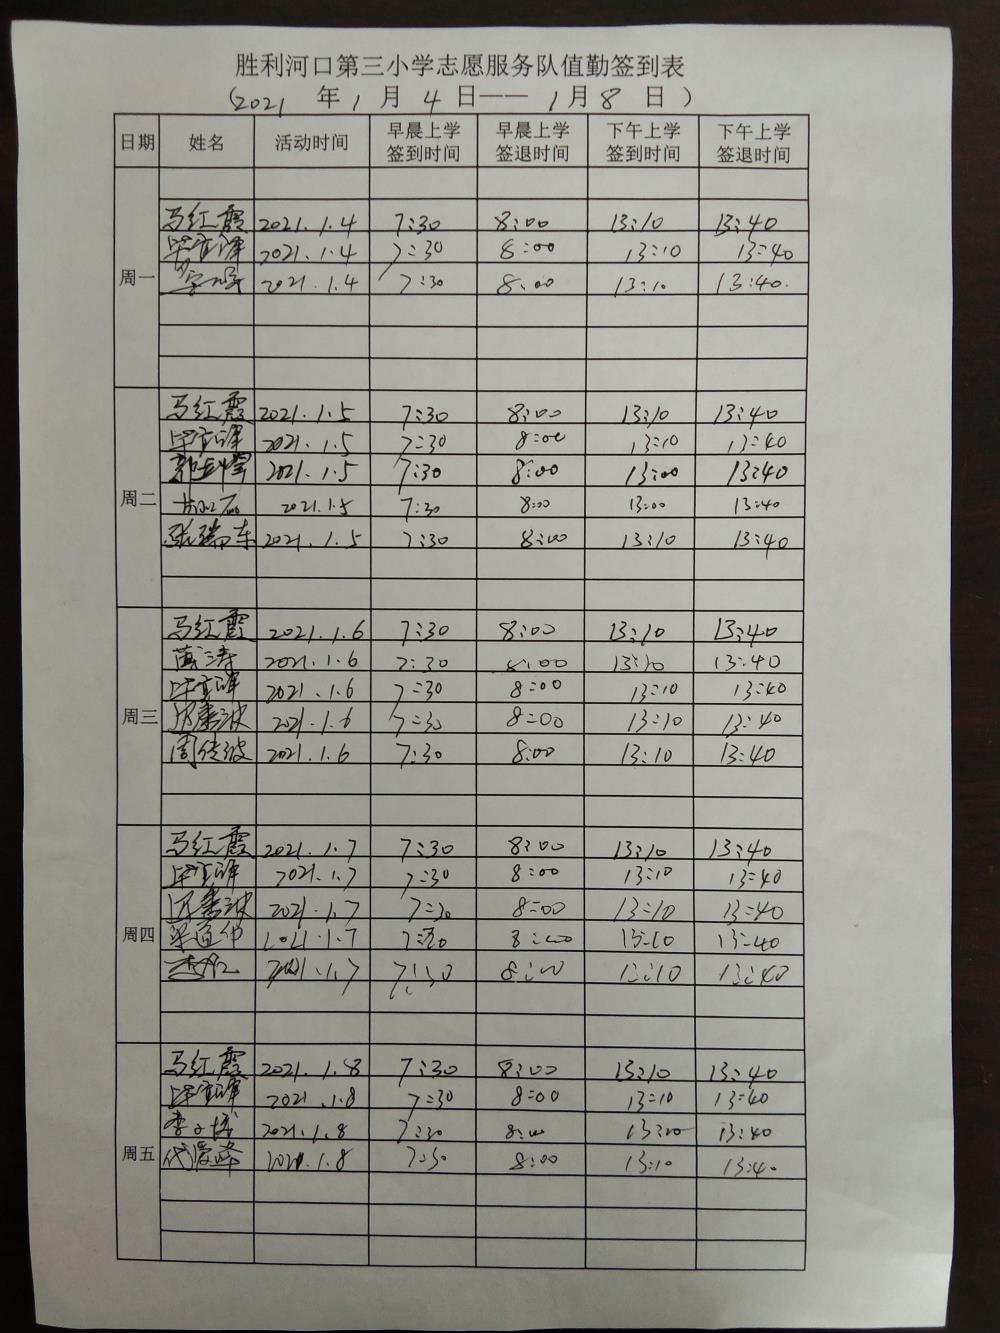 胜利河口第三小学志愿服务队值勤签到表
(2021 年 1 月 4 日—— 1月 8 日 )
日期 姓名 活动时间 早晨上学签到时间 早晨上学签退时间 下午上学签到时间 下午上学签退时间
周一
马红霞 2021.1.4 7:30 8:00 13:10 13:40
2021.1.4 7:30 8:00 13:10 13:40
2021.1.4 7:30 8:00 13:10 13:40.
周二
马红霞 2021.1.5 7:30 8:00 13:10 13:40
2021.1.5 7:30 8:00 13:10 13:40
2021.1.5 7:30 8:00 13:00 13:40
2021.1.5 7:30 8:00 13:00 13:40
张瑞东 2021.1.5 7:30 8:00 13:10 13:40
周三
马红霞 2021.1.6 7:30 8:00 13:10 13:40
2021.1.6 7:30 8:00 13:10 13:40
2021.1.6 7:30 8:00 13:10 13:40
2021.1.6 7:30 8:00 13:10 13:40
周传波 2021.1.6 7:30 8:00 13:10 13:40
周四
马红霞 2021.1.7 7:30 8:00 13:10 13:40
2021.1.7 7:30 8:00 13:10 13:40
2021.1.7 7:30 8:00 13:10 13:40
2021.1.7 7:30 8:00 13:10 13:40
2021.1.7 7:30 8:00 13:10 13:40
周五
马红霞 2021.1.8 7:30 8:00 13:10 13:40
2021.1.8 7:30 8:00 13:10 13:40
2021.1.8 7:30 8:00 13:40
2021.1.8 7:30 8:00 13:10 13:40